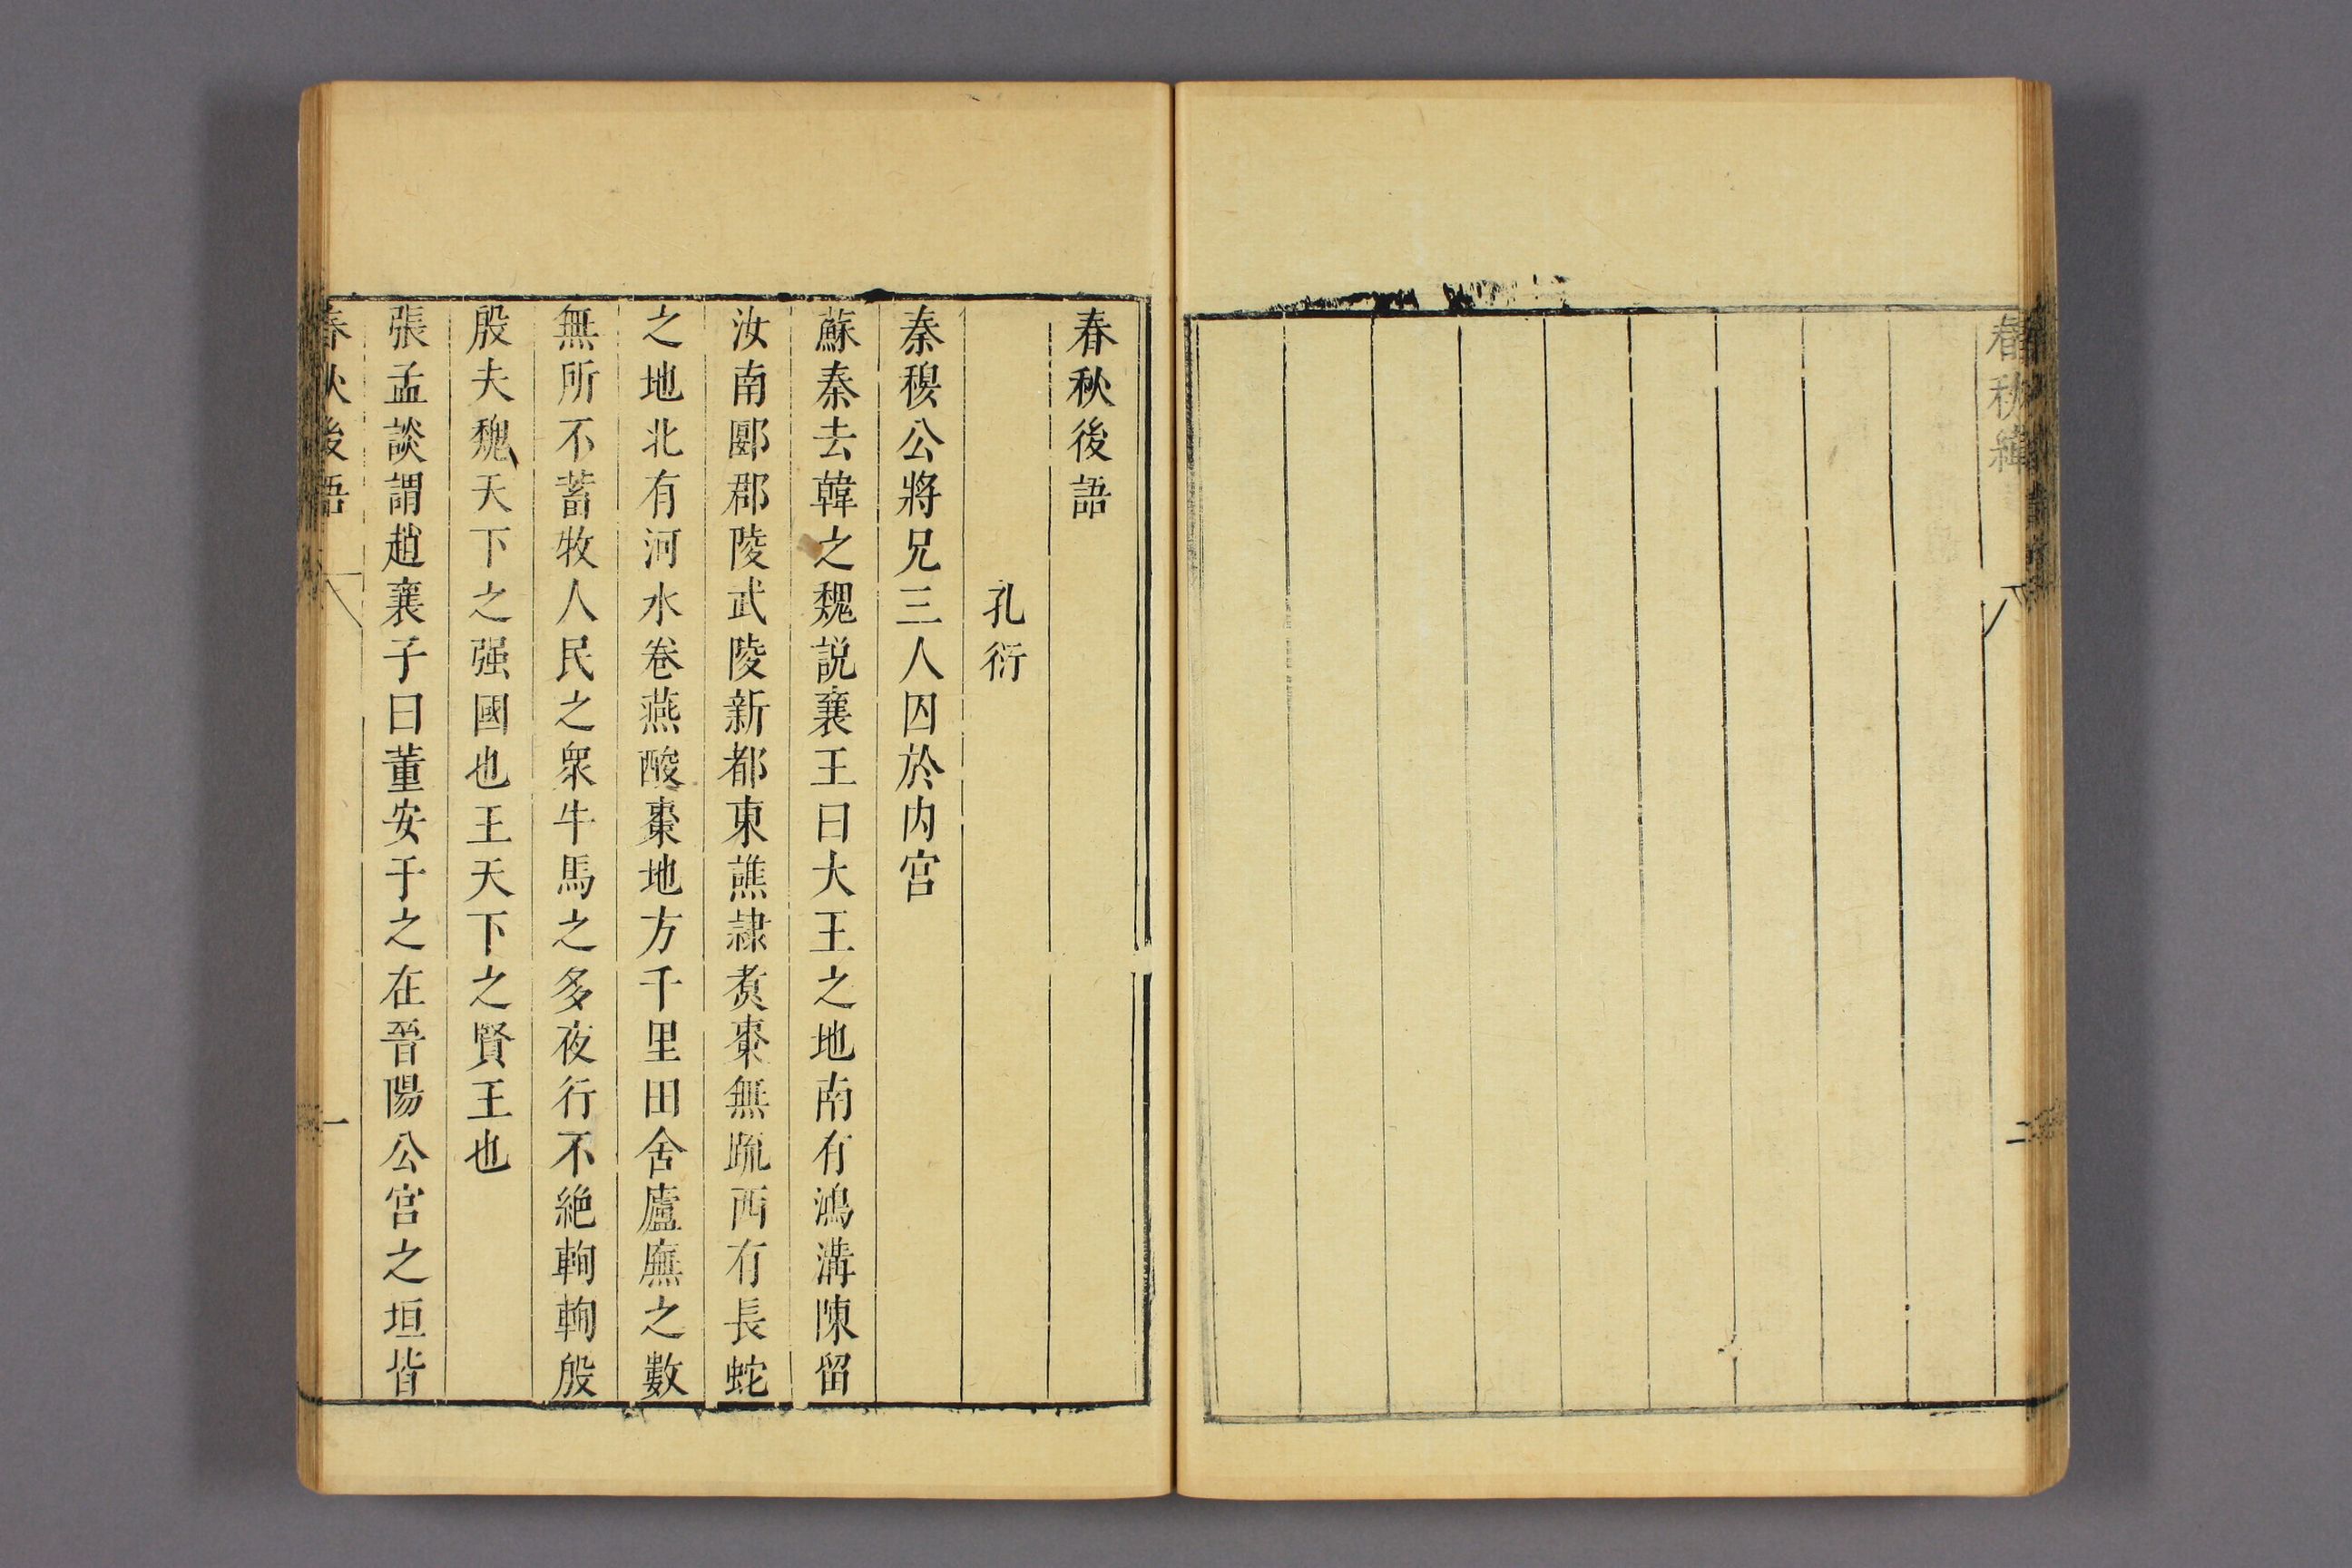 春秋緯
二
春秋後語
孔衍
秦穆公將兄三人囚於内宮
蘇秦去韓之魏説襄王曰大王之地南有鴻溝陳留
汝南郾郡陵武陵新都東譙隷煑棗無䟽西有長蛇
之地北有河水卷燕酸棗地方千里田舍廬廡之數
無所不蓄牧人民之衆牛馬之多夜行不絶輷輷殷
殷夫魏天下之强國也王天下之賢王也
張孟談謂趙襄子曰董安于之在晉陽公宮之垣皆
春秋後語
一